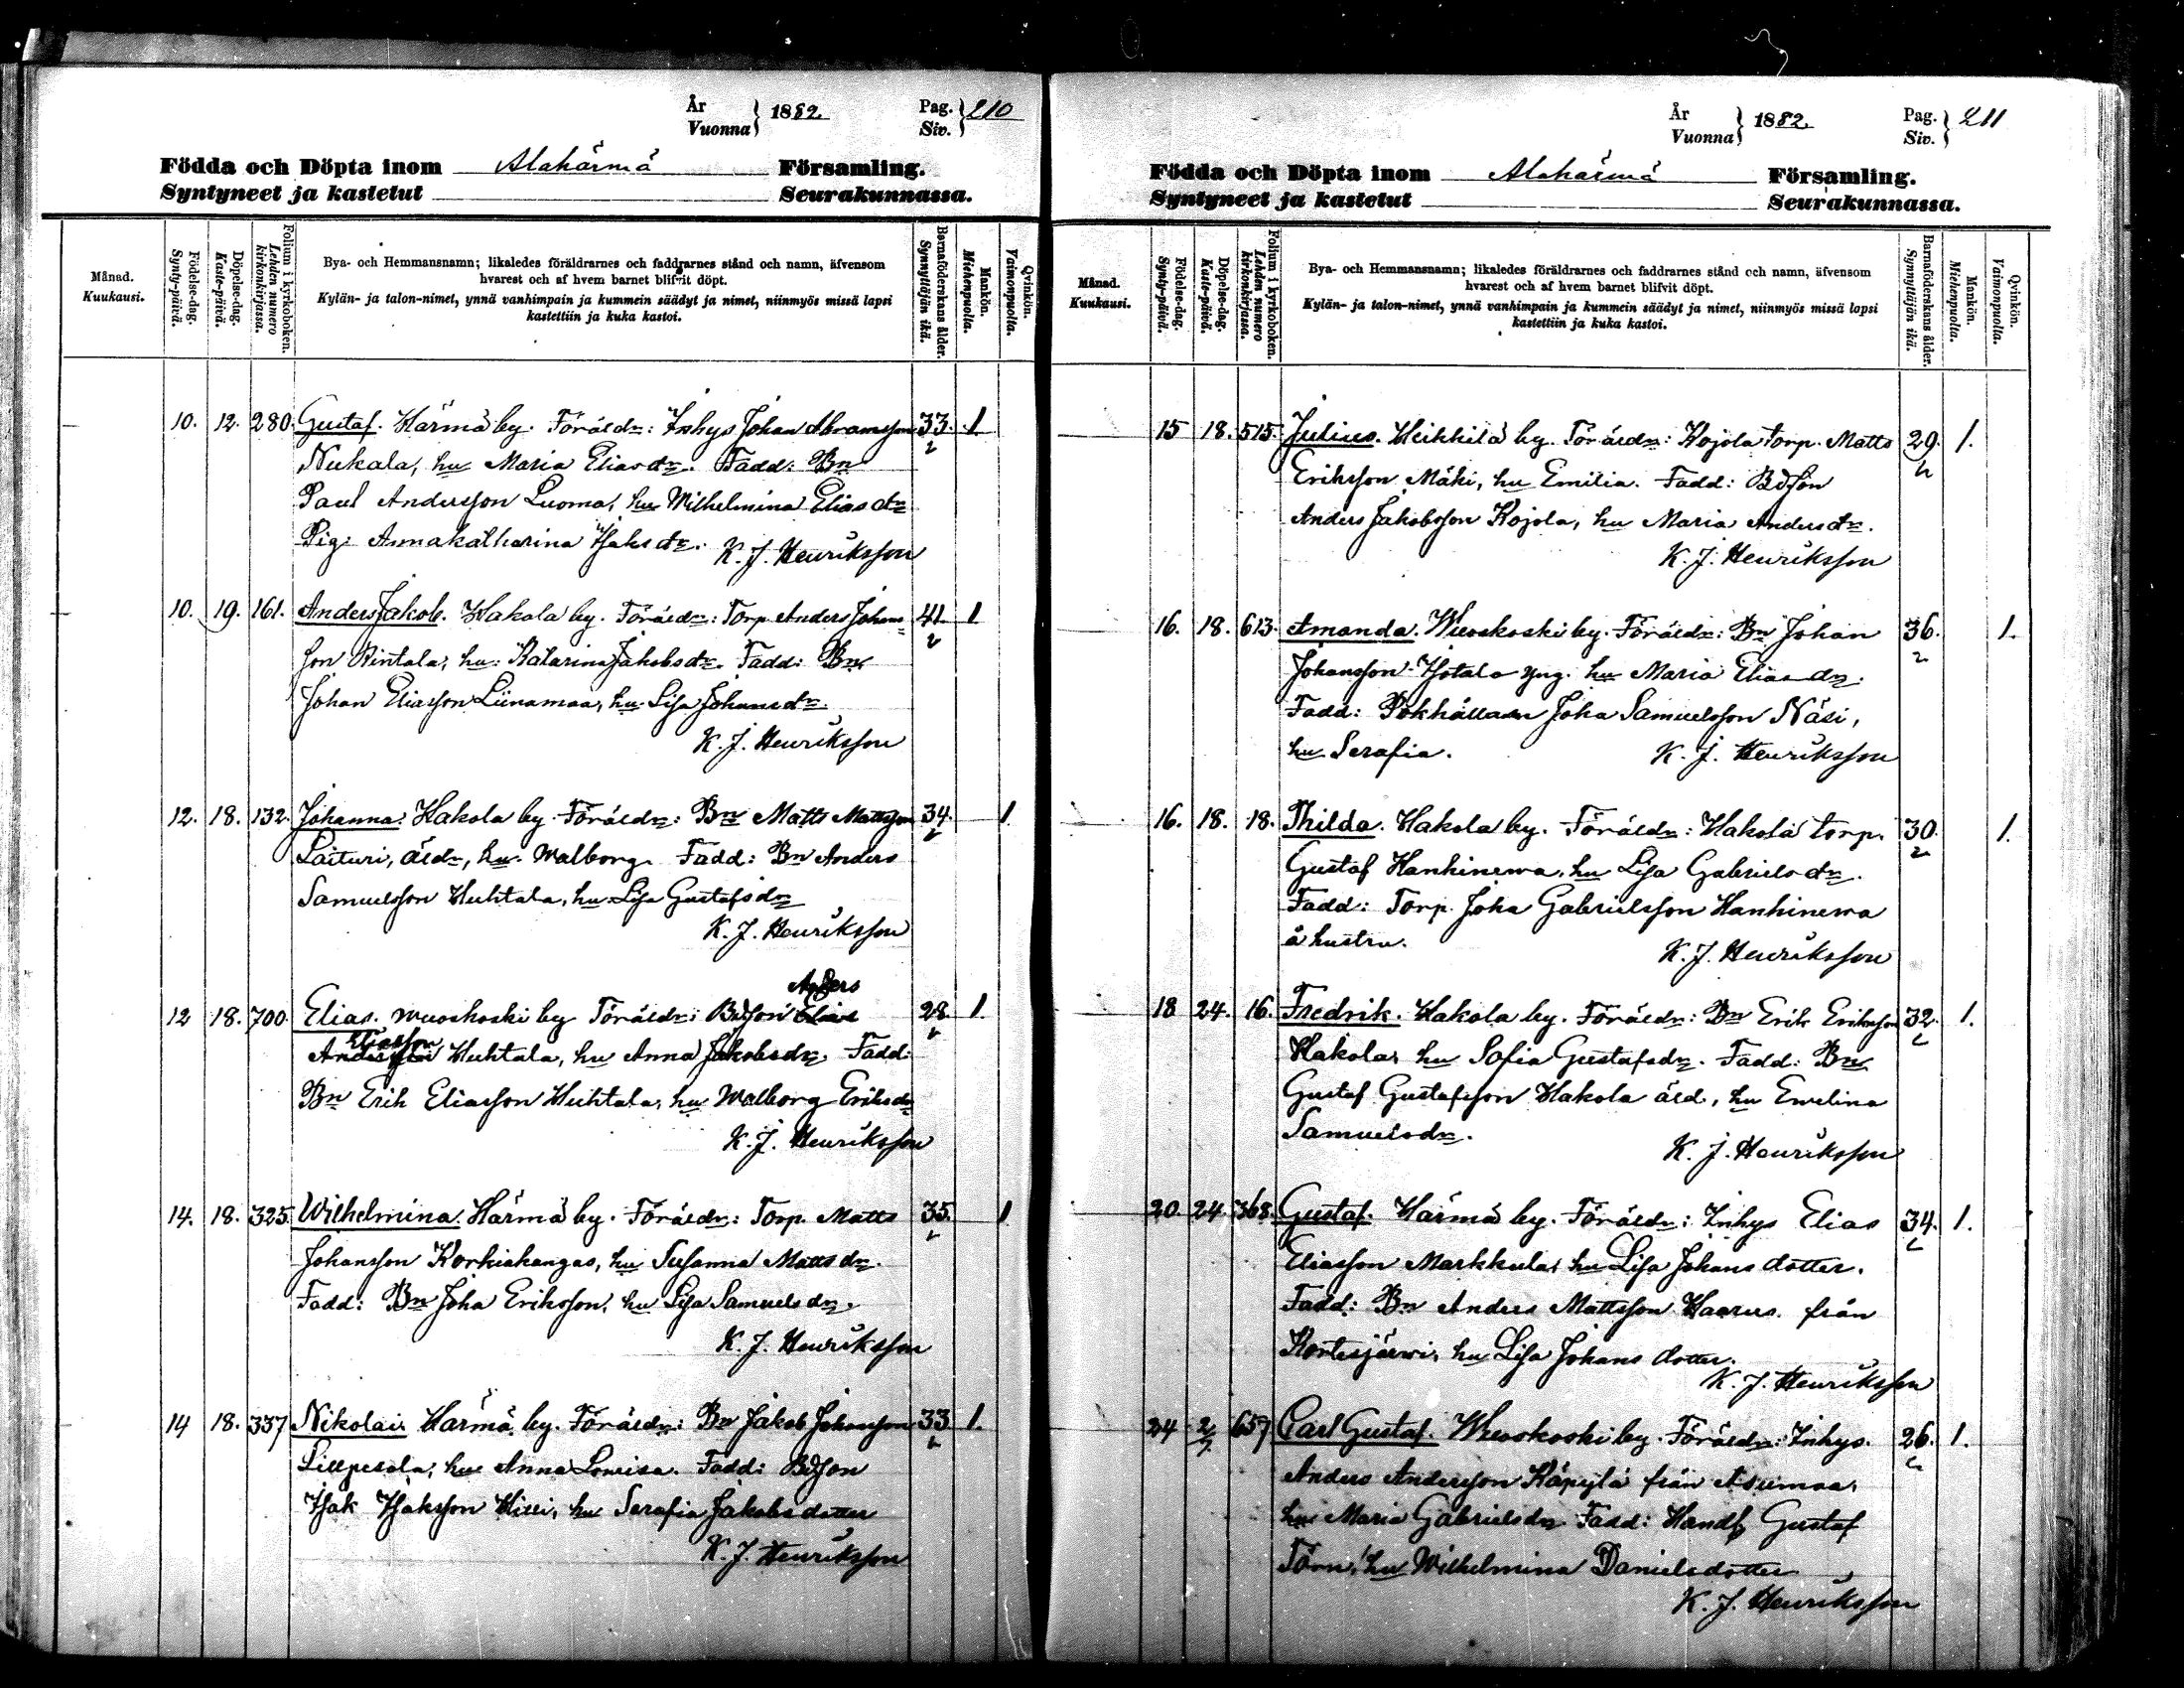 År
Vuonna } 1882. Pag.
Siv. } 210
Födda och Döpta inom Alahärmä Församling.
Syntyneet ja kastetut Seurakunnassa.
Månad.
Kuukausi.
Födelse-dag.
Synty-päivä.
Döpelse-dag.
Kaste-päivä.
Folium i kyrkoboken.
Lehden numero
kirkonkirjassa.
Bya- och Hemmansnamn; likaledes föräldrarnes och faddrarnes stånd och namn, äfvensom
hvarest och af hvem barnet blifvit döpt.
Kylän- ja talon-nimet, ynnä vanhimpain ja kummein säädyt ja nimet, niinmyös missä lapsi
kastettiin ja kuka kastoi.
Barnaföderskans ålder.
Synnyttäjän ikä.
Mankön.
Miehenpuolta.
Qvinkön.
Vaimonpuolta.
10. 12. 280. Gustaf. Härmä by. Föräldr: Inhys Johan Abramsson 33 1
Nukala, hu Maria Eliasdr. Fadd: Bn
Paul Andersson Luoma, hu Wilhelmina Eliasdr
Pig: Annakatharina Isaksdr. K. J. Henriksson
10. 19. 161. Anders Jakob. Hakola by. Föräldr: Torp Anders Johans= 41. 1
son Rintala, hu: Katarina Jakobsdr. Fadd: Bn
Johan Eliasson Liinamaa, hu Lisa Johansdr.
K. J. Henriksson
12. 18. 132. Johanna. Hakola by. Föräldr: Bn Matts Mattsson 34. 1.
Laituri, äldr, hu. Walborg. Fadd: Bn Anders
Samuelsson Huhtala, hu. Lisa Gustafsdr
K. J. Henriksson
Anders
12 18. 700. Elias. Wuoskoski by Föräldr: Bdson Elias 28. 1.
Eliasson
Andersson Huhtala, hu Anna Jakobsdr. Fadd:
Bn Erik Eliasson Huhtala, hu Walborg Eriksdr
K. J. Henriksson
14. 18. 325. Wilhelmina. Härmä by. Föräldr: Torp. Matts 35. 1
Johansson Korkiakangas, hu Susanna Mattsdr.
Fadd: Bn Joha Eriksson, hu Lisa Samuelsdr.
K. J. Henriksson
14 18. 337 Nikolai. Härmä by. Föräldr: Bn Jakob Johansson 33 1.
Lillpesola, hu Anna Lovisa. Fadd: Bdson
Isak Isaksson Hilli, hu Serafia Jakobsdotter
K. J. Henriksson
År
Vuonna } 1882. Pag.
Siv. } 211
Födda och Döpta inom Alahärmä Församling.
Syntyneet ja kastetut Seurakunnassa.
Månad.
Kuukausi.
Födelse-dag.
Synty-päivä.
Döpelse-dag.
Kaste-päivä.
Folium i kyrkoboken.
Lehden numero
kirkonkirjassa.
Bya- och Hemmansnamn; likaledes föräldrarnes och faddrarnes stånd och namn, äfvensom
hvarest och af hvem barnet blifvit döpt.
Kylän- ja talon-nimet, ynnä vanhimpain ja kummein säädyt ja nimet, niinmyös missä lapsi
kastettiin ja kuka kastoi.
Barnaföderskans ålder.
Synnyttäjän ikä.
Mankön.
Miehenpuolta.
Qvinkön.
Vaimonpuolta.
15 18. 515. Julius. Heikkilä by. Föräldr: Kojola torp. Matts 29. 1.
Eriksson Mäki, hu Emilia. Fadd: Bdson
Anders Jakobsson Kojola, hu Maria Andersdr.
K. J. Henriksson
16. 18. 613. Amanda. Wuoskoski by. Föräldr: Bn Johan 36. 1.
Johansson Isotalo yng. hu Maria Eliasdr.
Fadd: Bokhållaren Joha Samuelsson Näsi,
hu Serafia. K. J. Henriksson
16. 18. 18. Thilda. Hakola by. Föräldr: Hakola torp. 30. 1.
Gustaf Hanhinewa, hu Lisa Gabrielsdr.
Fadd: Torp. Joha Gabrielsson Hanhinewa
å hustru. K. J. Henriksson
18 24. 16. Fredrik. Hakola by. Föräldr: Bn Erik Eriksson 32. 1.
Hakola, hu Sofia Gustafsdr. Fadd: Bn
Gustaf Gustafsson Hakola äld, hu Ewelina
Samuelsdr. K. J. Henriksson
20. 24. 368. Gustaf. Härmä by. Föräldr: Inhys Elias 34. 1.
Eliasson Markkula, hu Lisa Johansdotter.
Fadd: Bn Anders Mattsson Haarus från
Kortesjärwi, hu Lisa Johansdotter.
K. J. Henriksson
24 2/7 657 Carl Gustaf. Wuoskoski by. Föräldr: Inhys. 26. 1.
Anders Andersson Käpylä från Asumaa,
hu Maria Gabrielsdr Fadd: Handl Gustaf
Törn, hu Wilhelmina Danielsdotter
K. J. Henriksson